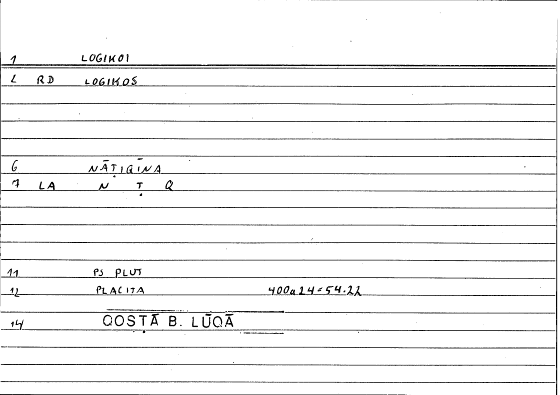 1 LOGIKOI
2 RD LOGIKOS
6 NĀṬIQĪNA
7 LA N Ṭ Q
11 PS PLUT
12 PLACITA 400a24=54.22
14 QOSṬĀ B. LŪQĀ